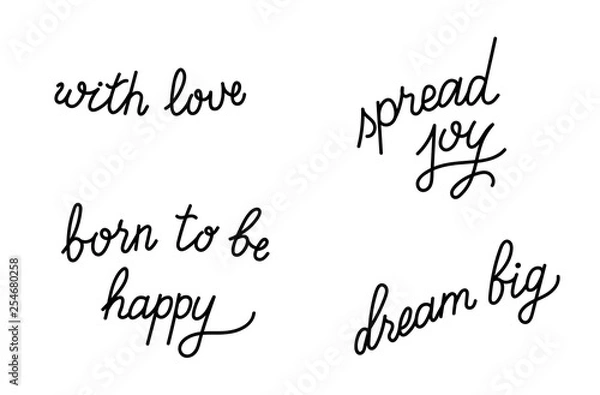 with love
spread
joy
born to be
happy
dream big
Adobe Stock | #254680258